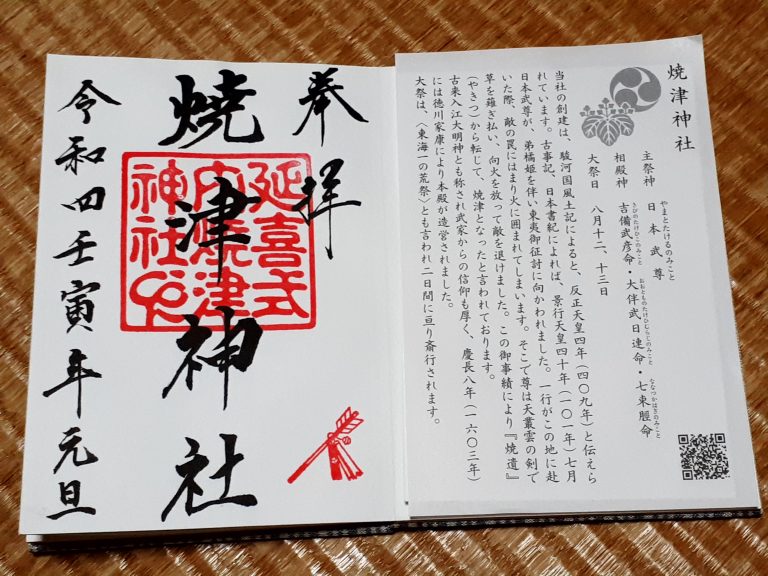 焼津神社
主祭神 日本武尊
やまとたけるのみこと
相殿神 吉備武彦命・大伴武日連命・七束脛命
きびのたけひこのみこと
おおとものたけひむらじのみこと
ななつかはぎのみこと
大祭日 八月十二、十三日
当社の創建は、駿河国風土記によると、反正天皇四年(四〇九年)と伝えら
れています。古事記、日本書紀によれば、景行天皇四十年(一〇一年)七月
日本武尊が、弟橘姫を伴い東夷御征討に向かわれました。一行がこの地に赴
いた際、敵の罠にはまり火に囲まれてしまいます。そこで尊は天叢雲の剣で
草を薙ぎ払い、向火を放って敵を退けました。この御事績により『焼遺』
(やきつ)から転じて、焼津となったと言われております。
古来入江大明神とも称され武家からの信仰も厚く、慶長八年(一六〇三年)
には徳川家康により本殿が造営されました。
大祭は、〈東海一の荒祭〉とも言われ二日間に亘り斎行されます。
奉拝
焼津神社
延喜式
内焼津
神社
令和四壬寅年元旦